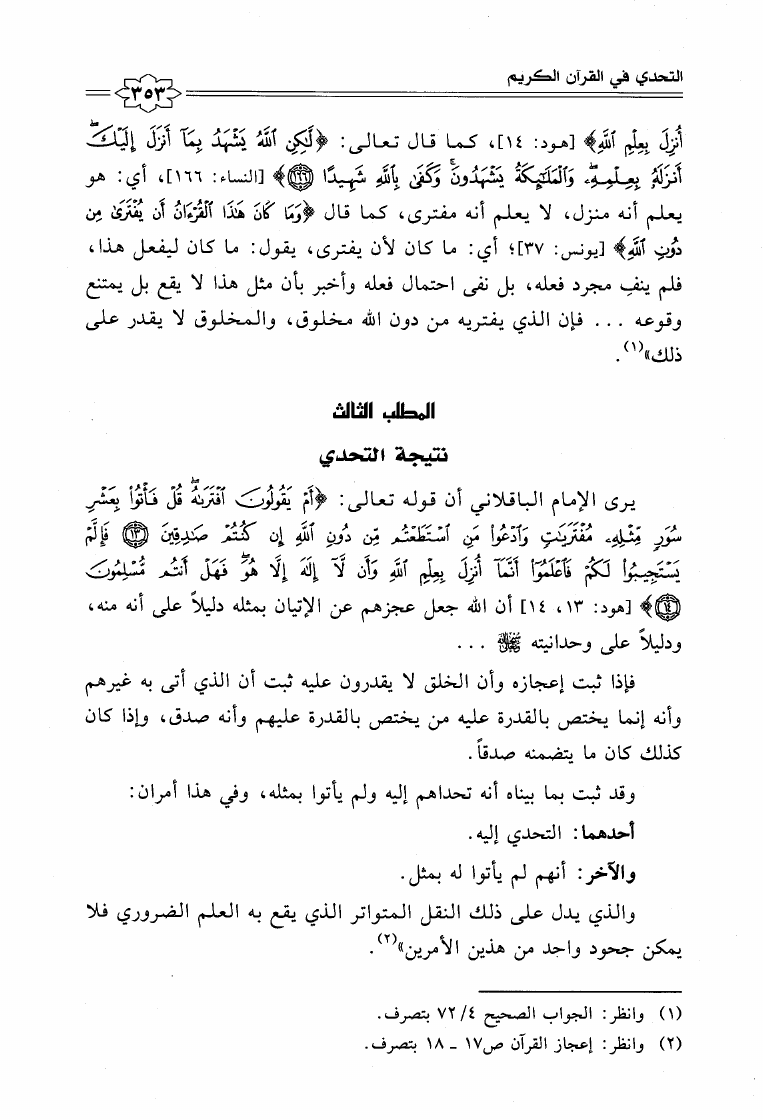 التحدي في القرآن الكريم
٣٥٣
أُنزِلَ بِعِلْمِ ٱللَّهِ﴾ [هود: ١٤]، كما قال تعالى: ﴿لَّٰكِنِ ٱللَّهُ يَشْهَدُ بِمَآ أَنزَلَ إِلَيْكَۖ
أَنزَلَهُۥ بِعِلْمِهِۦۖ وَٱلْمَلَٰٓئِكَةُ يَشْهَدُونَۚ وَكَفَىٰ بِٱللَّهِ شَهِيدًا ١٦٦﴾ [النساء: ١٦٦]، أي: هو
يعلم أنه منزل، لا يعلم أنه مفترى، كما قال ﴿وَمَا كَانَ هَٰذَا ٱلْقُرْءَانُ أَن يُفْتَرَىٰ مِن
دُونِ ٱللَّهِ﴾ [يونس: ٣٧]؛ أي: ما كان لأن يفترى، يقول: ما كان ليفعل هذا،
فلم ينفِ مجرد فعله، بل نفى احتمال فعله وأخبر بأن مثل هذا لا يقع بل يمتنع
وقوعه ... فإن الذي يفتريه من دون الله مخلوق، والمخلوق لا يقدر على
ذلك»(١).
المطلب الثالث
نتيجة التحدي
يرى الإمام الباقلاني أن قوله تعالى: ﴿أَمْ يَقُولُونَ ٱفْتَرَىٰهُۖ قُلْ فَأْتُوا۟ بِعَشْرِ
سُوَرٍ مِّثْلِهِۦ مُفْتَرَيَٰتٍ وَٱدْعُوا۟ مَنِ ٱسْتَطَعْتُم مِّن دُونِ ٱللَّهِ إِن كُنتُمْ صَٰدِقِينَ ١٣ فَإِلَّمْ
يَسْتَجِيبُوا۟ لَكُمْ فَٱعْلَمُوٓا۟ أَنَّمَآ أُنزِلَ بِعِلْمِ ٱللَّهِ وَأَن لَّآ إِلَٰهَ إِلَّا هُوَۖ فَهَلْ أَنتُم مُّسْلِمُونَ
١٤﴾ [هود: ١٣، ١٤] أن الله جعل عجزهم عن الإتيان بمثله دليلاً على أنه منه،
ودليلاً على وحدانيته ...
فإذا ثبت إعجازه وأن الخلق لا يقدرون عليه ثبت أن الذي أتى به غيرهم
وأنه إنما يختص بالقدرة عليه من يختص بالقدرة عليهم وأنه صدق، وإذا كان
كذلك كان ما يتضمنه صدقاً.
وقد ثبت بما بيناه أنه تحداهم إليه ولم يأتوا بمثله، وفي هذا أمران:
أحدهما: التحدي إليه.
والآخر: أنهم لم يأتوا له بمثل.
والذي يدل على ذلك النقل المتواتر الذي يقع به العلم الضروري فلا
يمكن جحود واحد من هذين الأمرين»(٢).
(١) وانظر: الجواب الصحيح ٧٢/٤ بتصرف.
(٢) وانظر: إعجاز القرآن ص١٧ - ١٨ بتصرف.